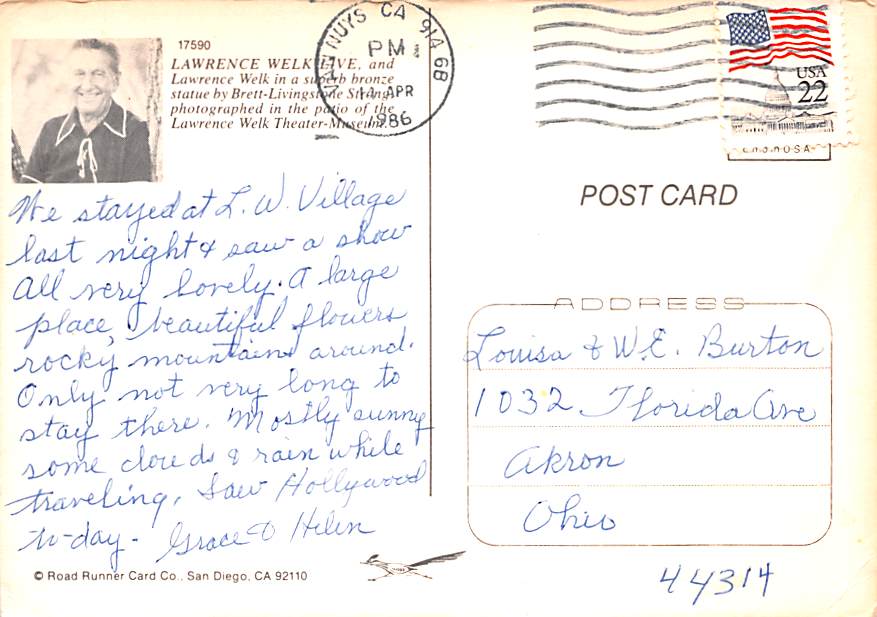 17590
LAWRENCE WELK LIVE, and
Lawrence Welk in a superb bronze
statue by Brett-Livingstone Strong
photographed in the patio of the
Lawrence Welk Theater-Museum.
NUYS CA 914 68
PM
14 APR
1986
USA
22
POST CARD
ADDRESS
We stayed at L. W. Village
last night & saw a show
All very lovely. A large
place, beautiful flowers
rocky mountains around.
Only not very long to
stay there. Mostly sunny
some clouds & rain while
traveling. Saw Hollywood
to-day - Grace & Helen
Louisa & W.E. Burton
1032 Florida Ave
Akron
Ohio
44314
© Road Runner Card Co., San Diego, CA 92110